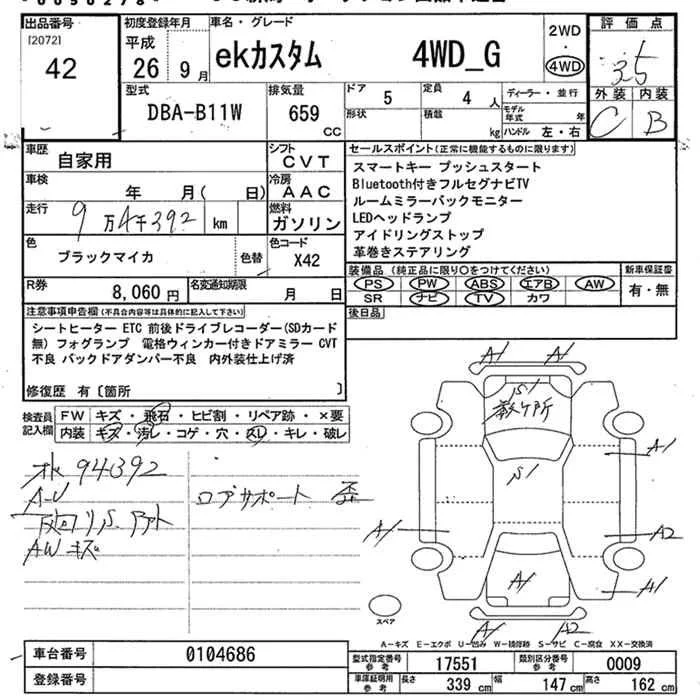 出品番号
[2072]
42
初度登録年月
平成
26 9月
車名・グレード
ekカスタム 4WD_G
2WD
・
4WD
評価点
3.5
外装 内装
C B
型式
DBA-B11W
排気量
659
CC
ドア
5
定員
4 人
形状
積載
kg
ディーラー・並行
モデル年式 年
ハンドル 左・右
車歴
自家用
シフト
CVT
車検
年 月( 日)
冷房
AAC
走行
9万4千392 km
燃料
ガソリン
色
ブラックマイカ
色替
色コード
X42
R券
8,060 円
名変通知期限
月 日
セールスポイント(正常に機能するものに限ります)
スマートキー プッシュスタート
Bluetooth付きフルセグナビTV
ルームミラーバックモニター
LEDヘッドランプ
アイドリングストップ
革巻きステアリング
装備品 (純正品に限り○をつけてください)
PS PW ABS エアB AW
SR ナビ TV カワ
新車保証書
有・無
後日品
注意事項申告欄(不具合内容は具体的に記入して下さい)
シートヒーター ETC 前後ドライブレコーダー(SDカード
無) フォグランプ 電格ウィンカー付きドアミラー CVT
不良 バックドアダンパー不良 内外装仕上げ済
修復歴 有〔箇所 〕
検査員
記入欄
FW キズ・飛石・ヒビ割・リペア跡・×要
内装 キズ・汚レ・コゲ・穴・スレ・キレ・破レ
94392
A-U
AW キズ
A1 A1
S1
数ケ所
S1
A1
A1
A2
A1
A1
A1 A2
スペア
A-キズ E-エクボ U-凹み W-補修跡 S-サビ C-腐食 XX-交換済
車台番号 0104686
登録番号
型式指定番号
参考
17551
類別区分番号
参考
0009
車庫証明用
参考
長さ 339 cm 幅 147 cm 高さ 162 cm